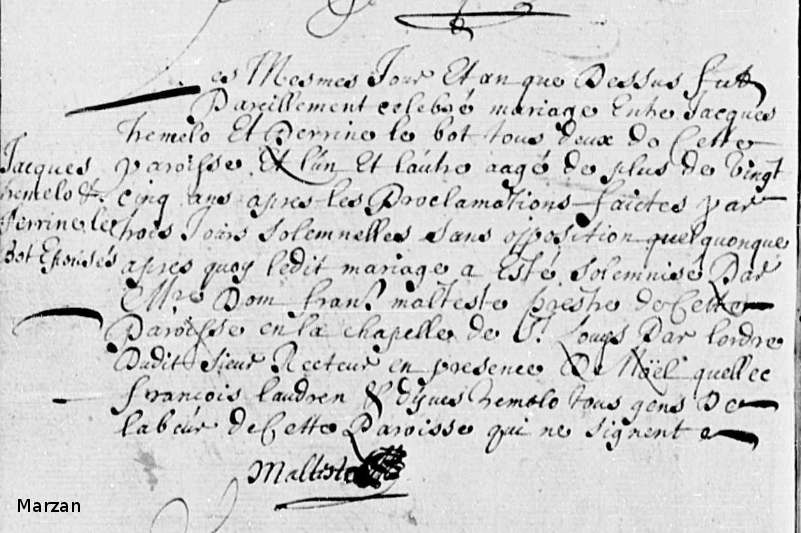 es Mesmes Jour Et an que Dessus fut
Pareillement celebré mariage Entre Jacques
tremelo Et Perrine le bot tous deux de Cette
paroisse Et l'un Et l'autre aagé de plus de vingt
cinq ans apres les Proclamations faictes par
trois Jours solemnelles sans opposition quelquonque
apres quoy ledit mariage a Esté solemnisé Par
Mre Dom fran.s malteste prestre de Cette
Paroisse en la chapelle de St. Louys Par lordre
Dudit Sieur Recteur en presence De Noël quellec
francois laudren & dyves tremelo tous gens De
labeur de Cette Paroisse qui ne signent
Malteste
Jacques
tremelo &
Perrine le
bot Epousés
Marzan